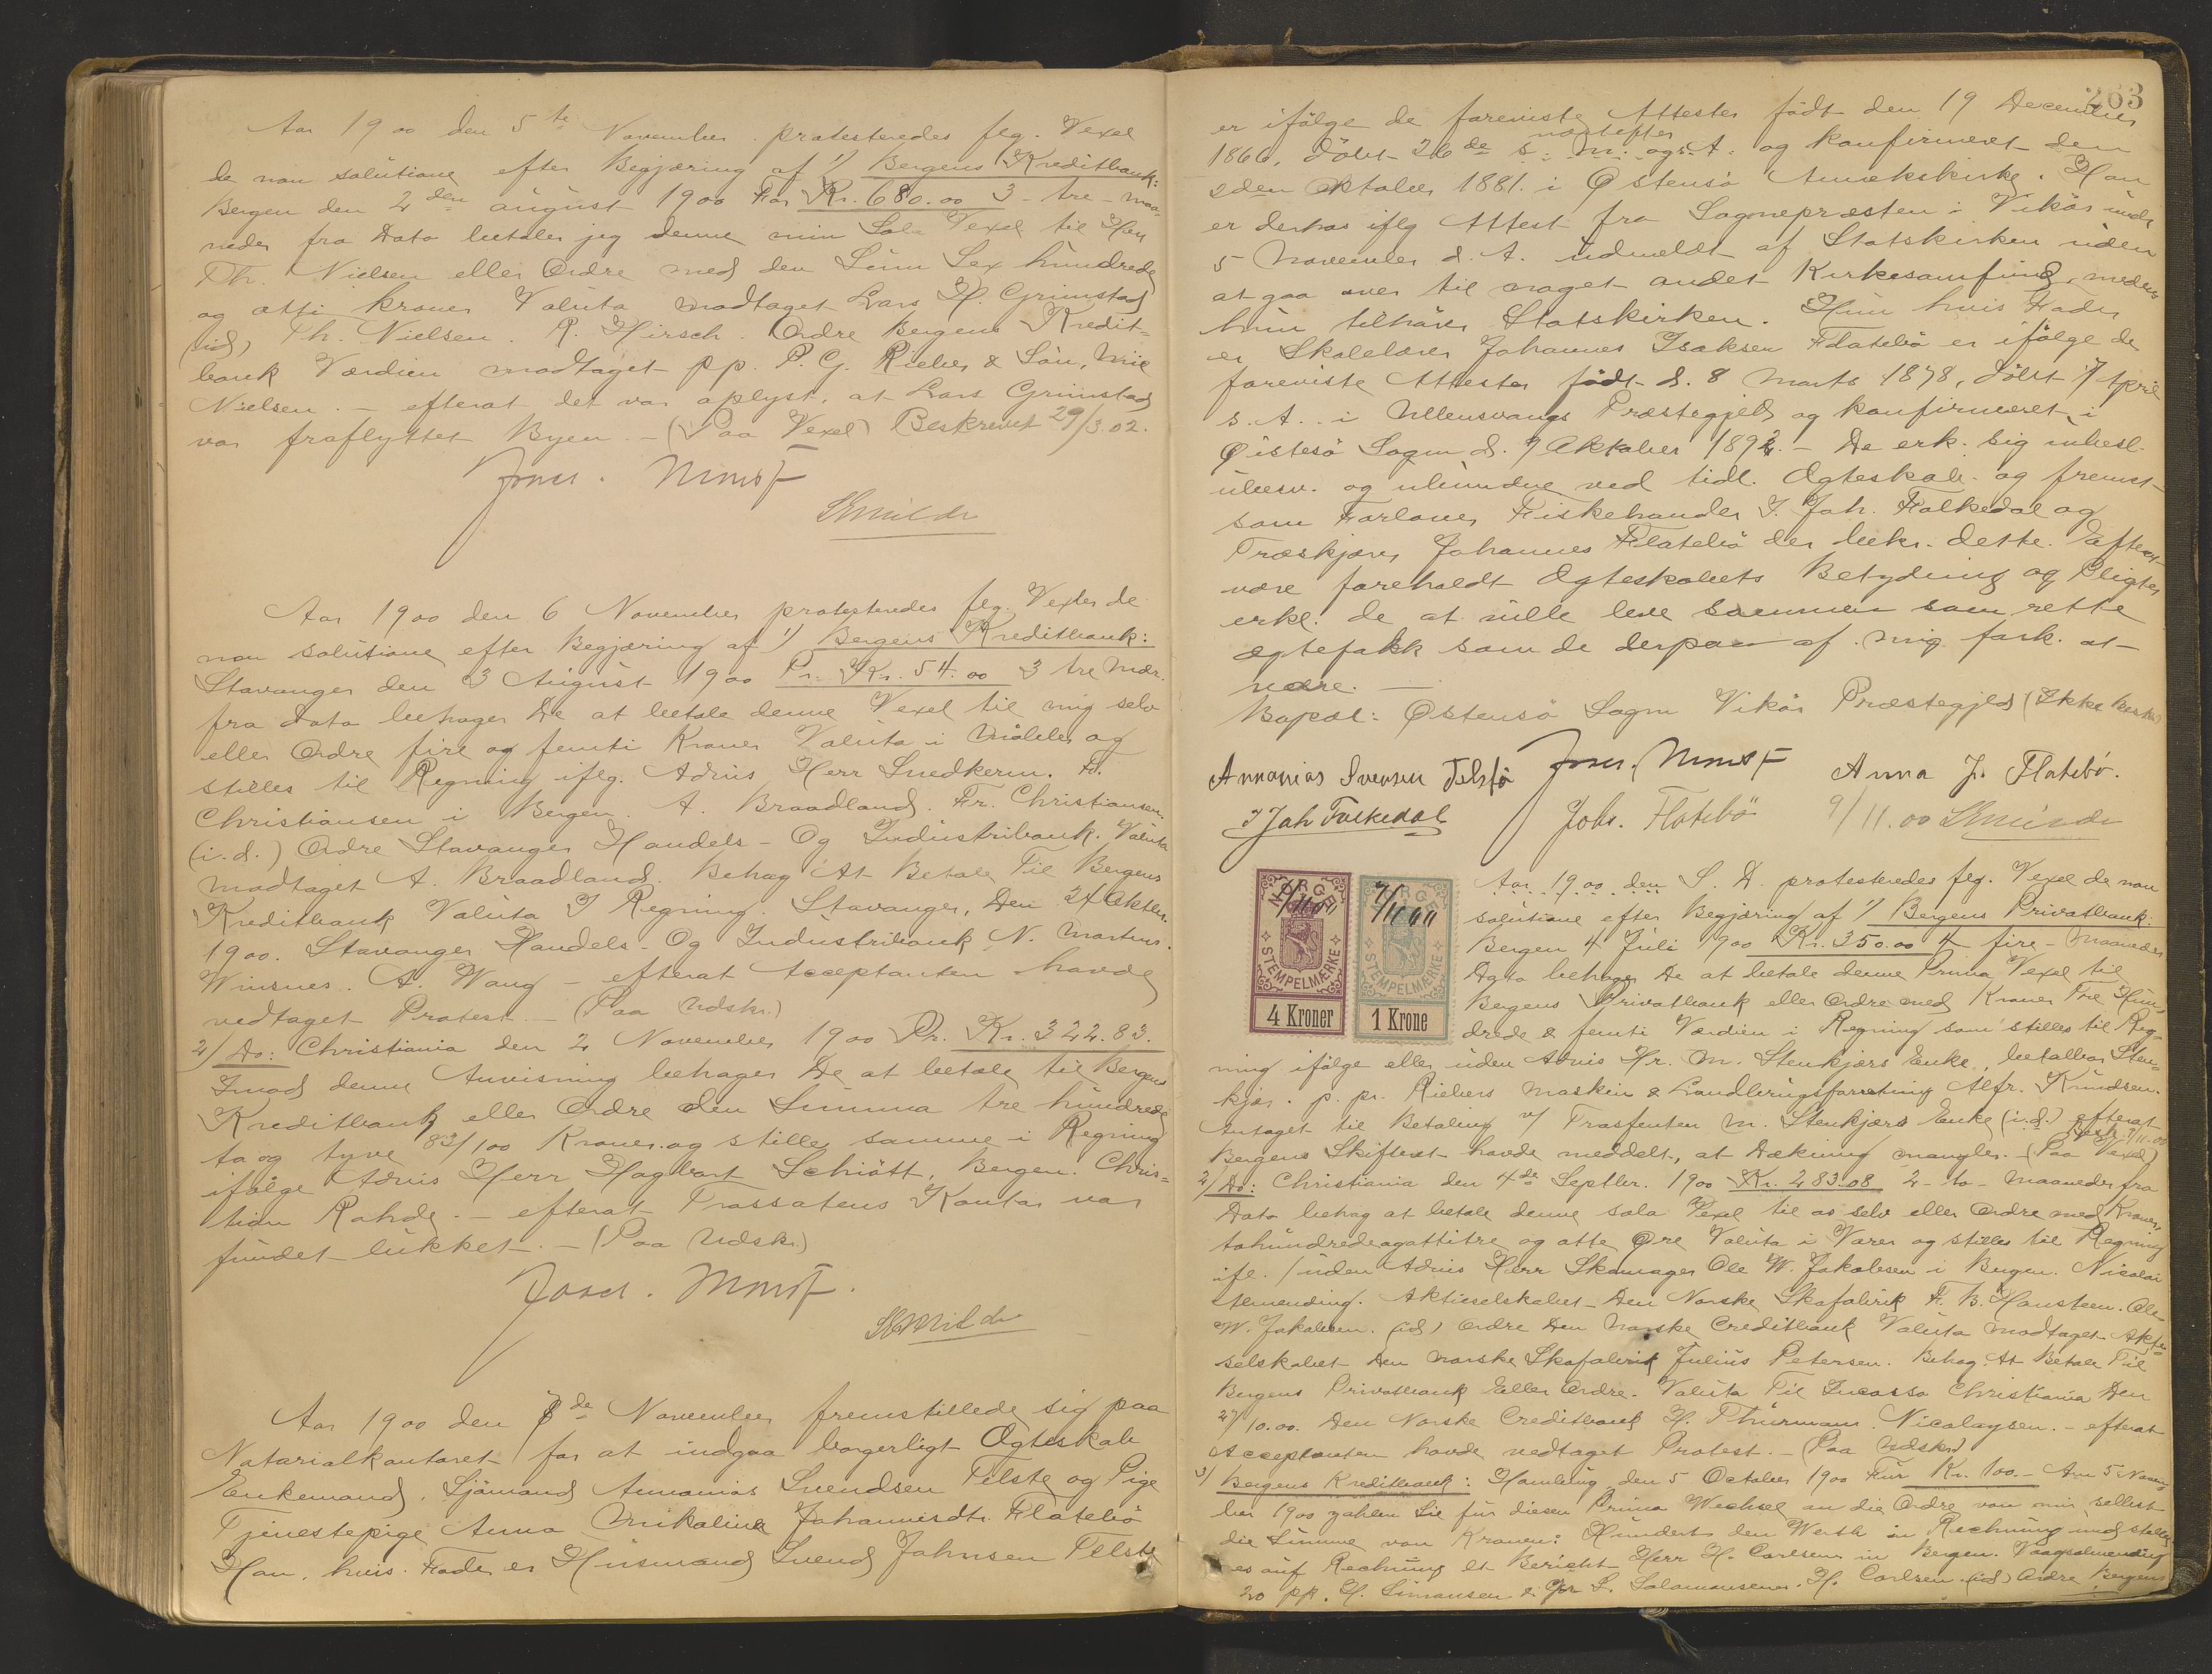 Aar 1900 den 5te November protesteredes flg. Vexel
de non solutione efter Begjæring af 1/ Bergens Kreditbank:
Bergen den 2den august 1900 For Kr. 680.00 3 - tre - maa-
neder fra Dato betaler jeg denne min Sola Vexel til Herr
Th. Nielsen eller Ordre med den Sum Sex hundrede
og otti kroner Valuta modtaget Lars H. Grimstad
(id) Th. Nielsen. R. Hirsch. Ordre Bergens Kredit-
bank Værdien modtaget pp. P. G. Rieber & Søn,
Nielsen. - efterat det var oplyst, at Lars Grimstad
var fraflyttet Byen. - (Paa Vexel) Beskrevet 29/3.02.
Aar 1900 den 6 November protesteredes flg. Vexler de
non solutione efter Begjæring af 1/ Bergens Kreditbank:
Stavanger den 3 August 1900 Pr. Kr. 54.00 3 tre Mdr.
fra dato behager De at betale denne Vexel til mig selv
eller Ordre fire og femti Kroner Valuta i Møbler og
stilles til Regning iflg. Advis Herr Snedkerm. Fr.
Christiansen i Bergen. A. Braadland. Fr. Christiansen.
(i.d.) Ordre Stavanger Handels- Og Industribank. Valuta
modtaget A. Braadland. Behag At Betale Til Bergens
Kreditbank Valuta I Regning. Stavanger, Den 24 Oktbr.
1900. Stavanger Handels- Og Industribank N. Martens.
Winsnes. A. Wang - efterat Acceptanten havde
vedtaget Protest. - (Paa Udskr.)
2/ Do: Christiania den 2 November 1900 Pr. Kr. 322.83.
Imod denne Anvisning behager De at betale til Bergens
Kreditbank eller Ordre den Summa tre hundrede
to og tyve 83/100 Kroner og stiller samme i Regning
ifølge Advis Herr Hagbart Schiøtt, Bergen. Chris-
tian Rohde. - efterat Trassatens Kontor var
fundet lukket. - (Paa Udskr.)
Aar 1900 den 7de November fremstillede sig paa
Notarialkontoret for at indgaa borgerligt Ægteskab
Enkemand, Sjømand Annanias Svendsen Telste og Pige
Tjenestepige Anna Mikaline Johannesdtr. Flatebø
Han, hvis Fader er Husmand Svend Johnsen Telste
263
er ifølge de foreviste Attester født den 19 December
1866, døbt 26de s. m. og A. og konfirmeret den
næstefter
2den Oktober 1881 i Østensø Annekskirke. Han
er derhos iflg Attest fra Sognepræsten i Vikør under
5 November d. A. udmeldt af Statskirken uden
at gaa over til noget andet Kirkesamfund, medens
hun tilhører Statskirken. Hun hvis Fader
er Skolelærer Johannes Isaksen Flatebø er ifølge de
foreviste Attester født d. 8 Marts 1878, døbt 7 April
s. A. i Ullensvangs Præstegjeld og konfirmeret i
Øistesø Sogn d. 9 Oktober 1892. - De erk. sig ubesl.
ubesv. og ubundne ved tidl. Ægteskab og fremst.
som Forlover Fiskehandler I. Joh. Folkedal og
Træskjærer Johannes Flatebø der bekr. dette. Efter at
være foreholdt Ægteskabets Betydning og Pligter
erkl. de at ville leve sammen som rette
Ægtefolk som de derpaa af mig fork. at
være. -
Bopæl: Østensø Sogn Vikør Præstegjeld (Ikke Beskr.)
Annanias Svensen Telstø
Anna J. Flatebø.
I Joh Folkedal
Johs. Flatebø
9/11.00
NORGE STEMPELMÆRKE 4 Kroner
NORGE STEMPELMÆRKE 1 Krone
Aar 1900 den S. D. protesteredes flg. Vexel de non
solutione efter Begjæring af 1/ Bergens Privatbank:
Bergen 4 Juli 1900 Kr. 350.00 4 fire - Maaneder
Dato behager De at betale denne Prima Vexel til
Bergens Privatbank eller Ordre med Kroner Tre Hun-
drede & femti Værdien i Regning som stilles til Reg-
ning ifølge eller uden Advis Hr. M. Stenkjærs Enke, betalbar Sten-
kjær. p. pr. Riebers Maskin & Landbrugsforretning Alfr. Knudsen.
Antaget til Betaling v/ Trasfenten M. Stenkjærs Enke (i.d.) efterat
Bergens Skifteret havde meddelt, at Dækning mangler. - (Paa Vexel)
Beskr. 9/11.00
2/ Do: Christiania den 4de Septbr. 1900 Kr. 283.08 2 - to - Maaneder fra
Dato behag at betale denne sola Vexel til os selv eller Ordre med Kroner
tohundredeogottitre og otte Øre Valuta i Varer og stilles til Regning
ifl. / uden Advis Herr Skomager Ole W. Jakobsen i Bergen. Nicolai
Almending. Aktieselskabet Den Norske Skofabrik F. B. Hansteen. Ole
W. Jakobsen. (id) Ordre Den Norske Creditbank Valuta modtaget Aktie-
selskabet Den Norske Skofabrik Julius Petersen. Behag At Betale Til
Bergens Privatbank Eller Ordre. Valuta Til Incasso Christiania Den
27/10.00. Den Norske Creditbank H. Thurmann. Nicolaysen. - efterat
Acceptanten havde vedtaget Protest. - (Paa Udskr.)
3/ Bergens Kreditbank: Hamburg, den 5 October 1900 Für Kr. 100.- Am 5 Novem-
ber 1900 zahlen Sie für diesen Prima Wechsel an die Ordre von mir selbst
die Summe von Kronen: Hundert den Werth in Rechnung und stellen
es auf Rechnung lt Bericht Herr H. Carlsen in Bergen. Vaagsalmending
20 pp. H. Simonsen & Gor S. Salomonsen. H. Carlsen (id) Ordre Bergens